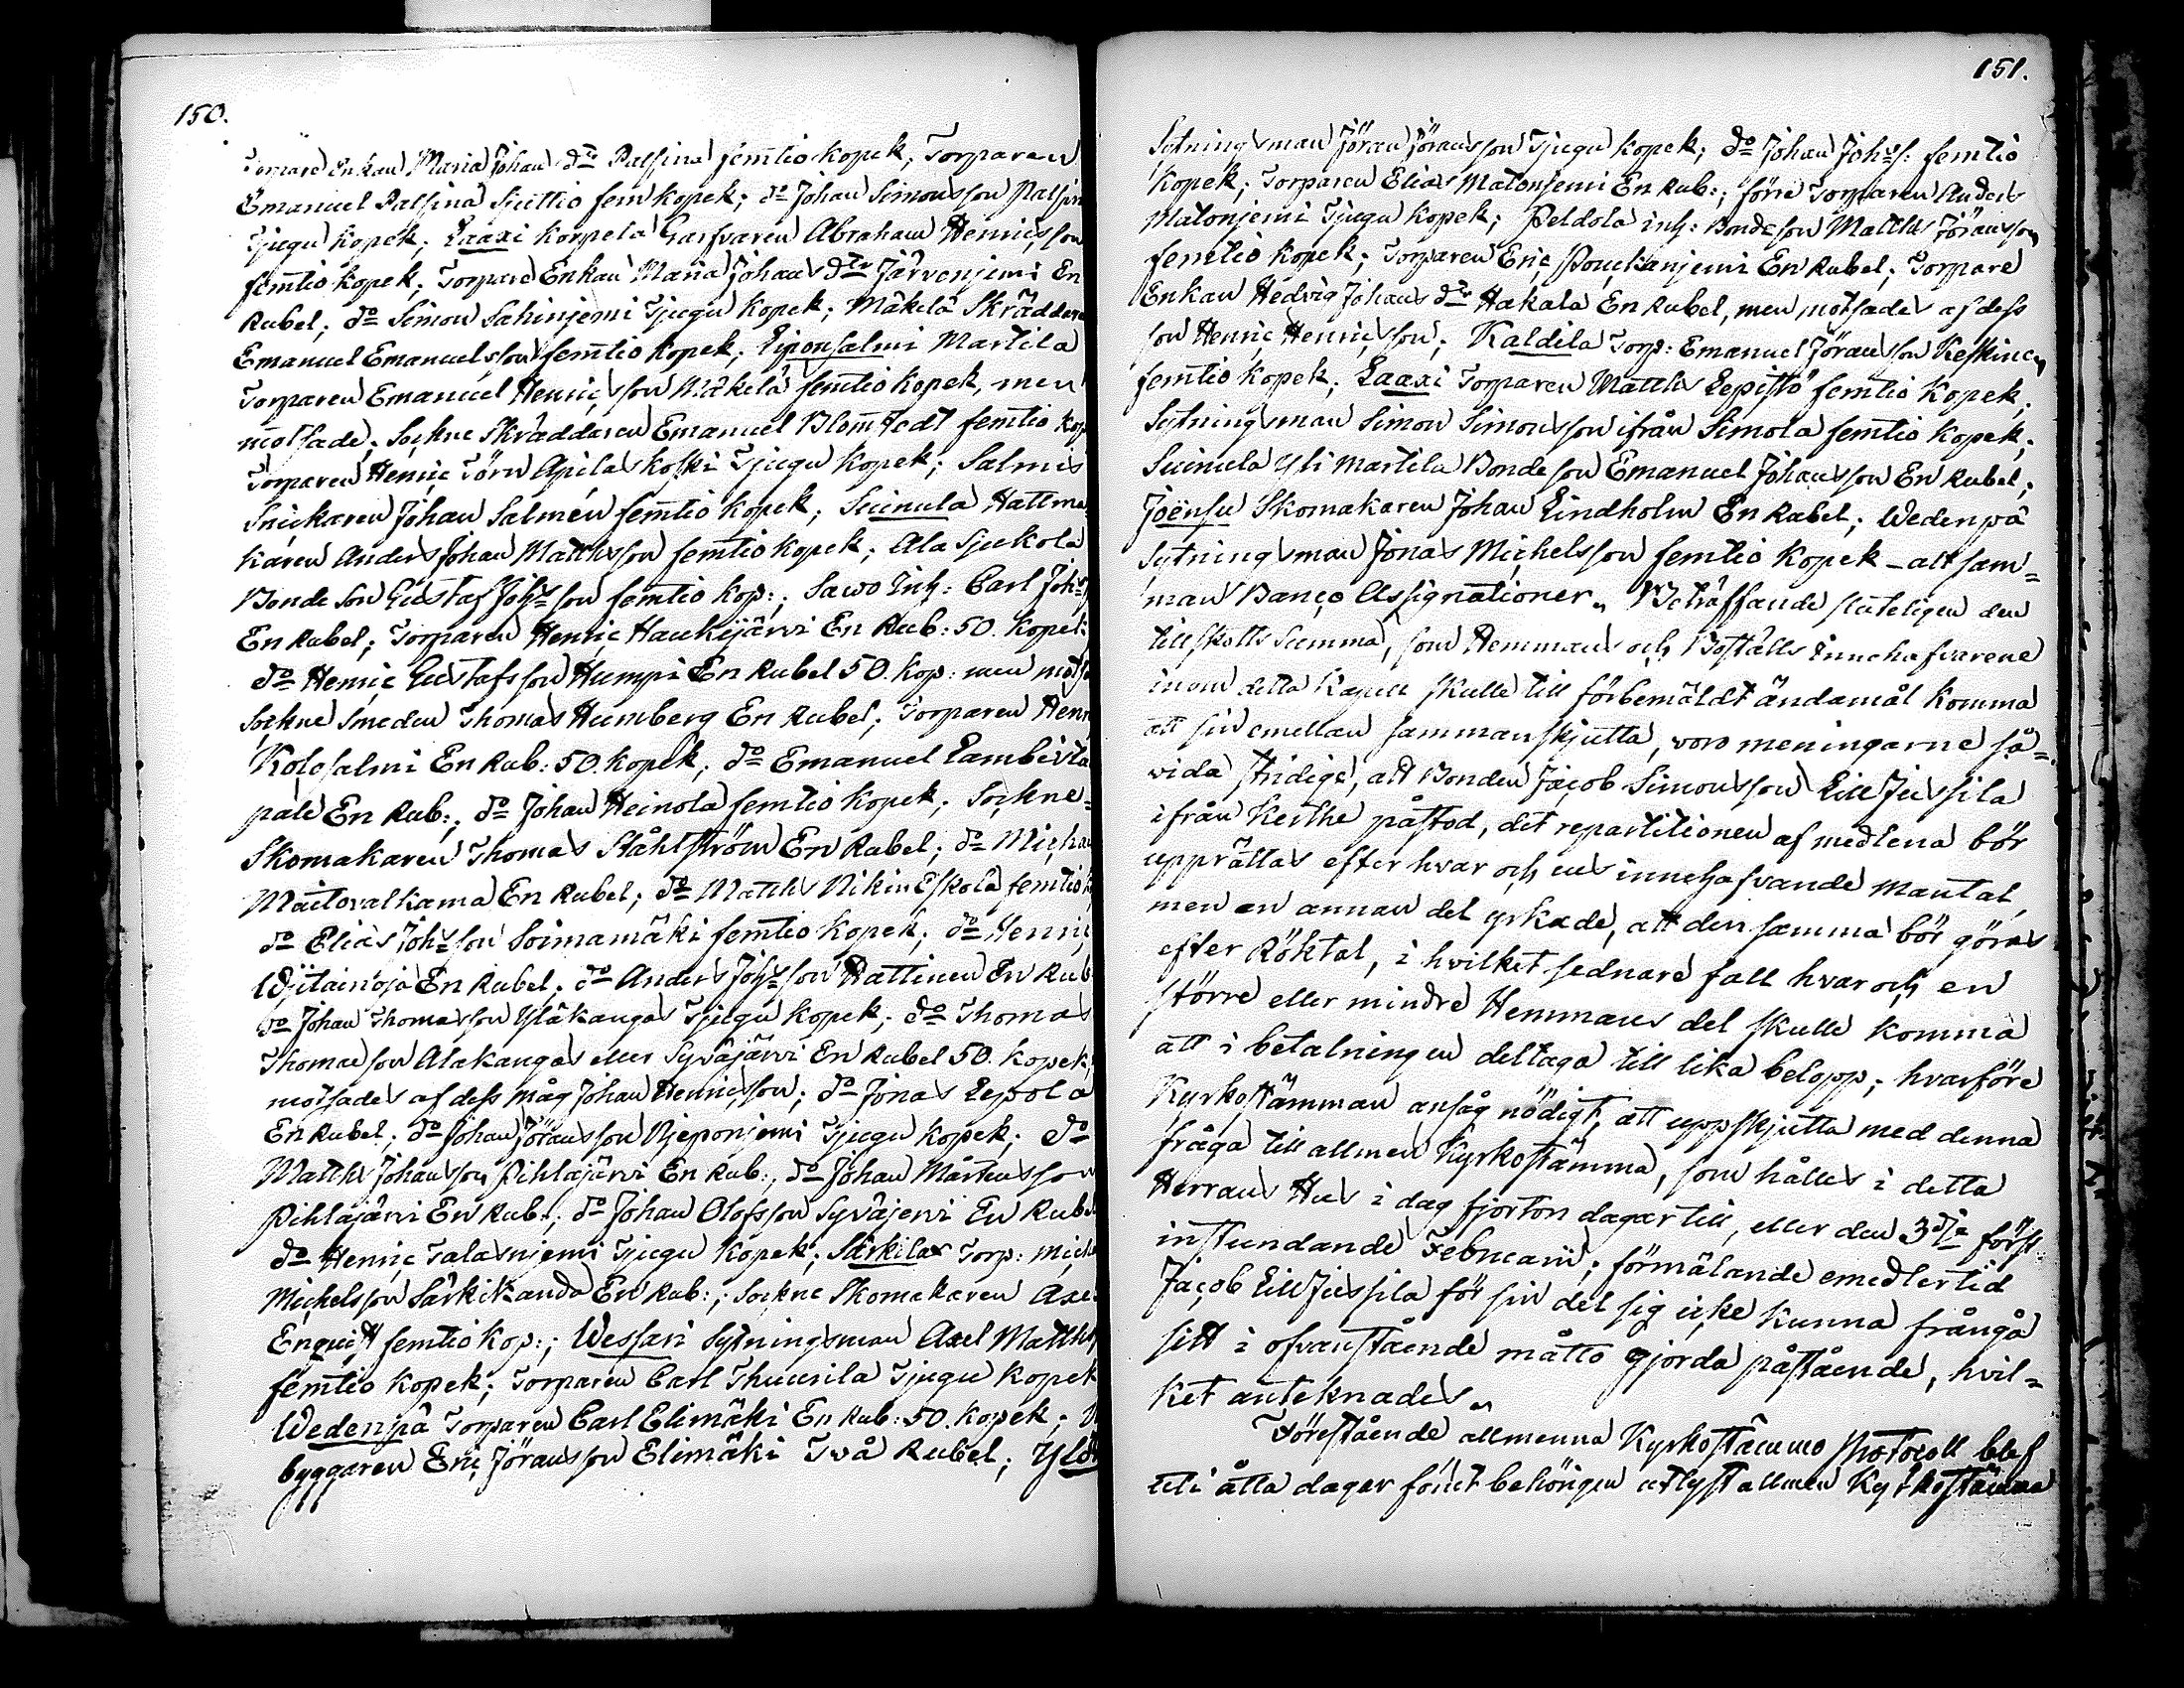 150.
Torpare Enkan Maria Johans dr Palsina femtio kopek; Torparen
Emanuel Palsina Sjuttio fem kopek; do Johan Simonsson Palsin
Tjugu kopek; Laaxi Korpela Garfvaren Abraham Henricsson
femtio kopek; Torpare Enkan Maria Johans dr Järvenjemi En
Rubel; do Simon Sahinjemi Tjugu kopek; Mäkelä Skräddare
Emanuel Emanuelsson femtio kopek; Liponsalmi Martila
Torparen Emanuel Henricsson Mäkelä femtio kopek, men
motsade; Sockne Skräddaren Emanuel Blomstedt femtio kop
Torparen Henric Törn Apilaskoski Tjugu kopek; Salmis
Snickaren Johan Salmén femtio kopek; Suinula Hattma
karen Anders Johan Mattsson femtio kopek; Ala Sjukola
Bonde Son Gustaf Johsson femtio kop:; Sawo Inh: Carl Johs
En Rubel; Torparen Henric Haukijärvi En Rub: 50. kopek
do Henric Gustafsson Humpi En Rubel 50. kop: men motsa
Sockne Smeden Thomas Humberg En Rubel; Torparen Henri
Kolosalmi En Rub: 50. kopek; do Emanuel Lambista
pale En Rub:; do Johan Heinola femtio kopek; Sockne=
Skomakaren Thomas Ståhlström En Rubel; do Michae
Maitovalkama En Rubel; do Matths Nikin Eskola femtio k
do Elias Johsson Soimamäki femtio kopek; do Henric
Wijtainoja En Rubel; do Anders Johsson Rattinen En Rub
do Johan Thomasson Yläkangas Tjugu kopek; do Thomas
Thomasson Alakangas eller Syväjärvi En Rubel 50. kopek,
motsades af dess måg Johan Henricsson; do Jonas Lepola
En Rubel; do Johan Jöransson Njeponjemi Tjugu kopek; do
Matths Johansson Pihlajärvi En Rub:, do Johan Mårtensson
Pihlajärvi En Rub:; do Johan Olofsson Syväjervi En Rubel
do Henric Talasnjemi Tjugu kopek; Särkilax Torp: Miche
Michelsson Särkikanda En Rub:; Sockne Skomakaren Axel
Enquist femtio kop:; Wessari Sytningsman Axel Matths
femtio kopek; Torparen Carl Thuurila Tjugu kopek
Wedenpä Torparen Carl Elimäki En Rub: 50. kopek;
byggaren Eric Jöransson Elimäki Två Rubel; Ylö
151.
Sytningsman Jöran Jöransson Tjugu kopek; do Johan Johs s: femtio
kopek; Torparen Elias Matonjemi En Rub:; förre Torparen Anders
Matonjemi Tjugu kopek; Peldola inh: Bondeson Matths Jöransson
femtio kopek; Torparen Eric Pouckanjemi En Rubel; Torpare
Enkan Hedvig Johans dr Hakala En Rubel, men motsades af dess
son Henric Henricsson; Kaldila Torp: Emanuel Jöransson Keskinen
femtio kopek; Laaxi Torparen Matths Lepistö femtio kopek;
Sytningsman Simon Simonsson ifrån Simola femtio kopek;
Suinula Yli Martila Bondeson Emanuel Johansson En Rubel;
Joënsu Skomakaren Johan Lindholm En Rubel; Wedenpä
Sytningsman Jonas Michelsson femtio kopek – allt sam=
man Banco Assignationer„ Beträffande sluteligen den
tillskotts Summa, som Hemmans och Boställs Innehafvarene
inom detta Kapell skulle till förbemäldt ändamål komma
att sin emellan sammanskjutta, voro meningarne så=
vida stridiga, att Bonden Jacob Simonsson Lill Jussila
ifrån Kerthe påstod, det repartitionen af medlena bör
upprättas efter hvar och ens innehafvande mantal,
men en annan del yrkade, att densamma bör göras
efter Röktal, i hvilket sednare fall hvar och en
större eller mindre Hemmans del skulle komma
att i betalningen deltaga till lika belopp; hvarföre
Kyrkostämman ansåg nödigt, att uppskjutta med denna
fråga till allmen Kyrkostämma, som hålles i detta
Herrans Hus i dag fjorton dagar till, eller den 3dje först
instundande Februarii; förmälande emedlertid
Jacob Lill Jussila för sin del sig icke kunna frångå
sitt i ofvanstående måtto gjorda påstående, hvil=
ket antecknades„
Förestående allmenna Kyrkostämmo Protocoll blef
uti åtta dagar förut behörigen utlyst allmen Kyrkostämma